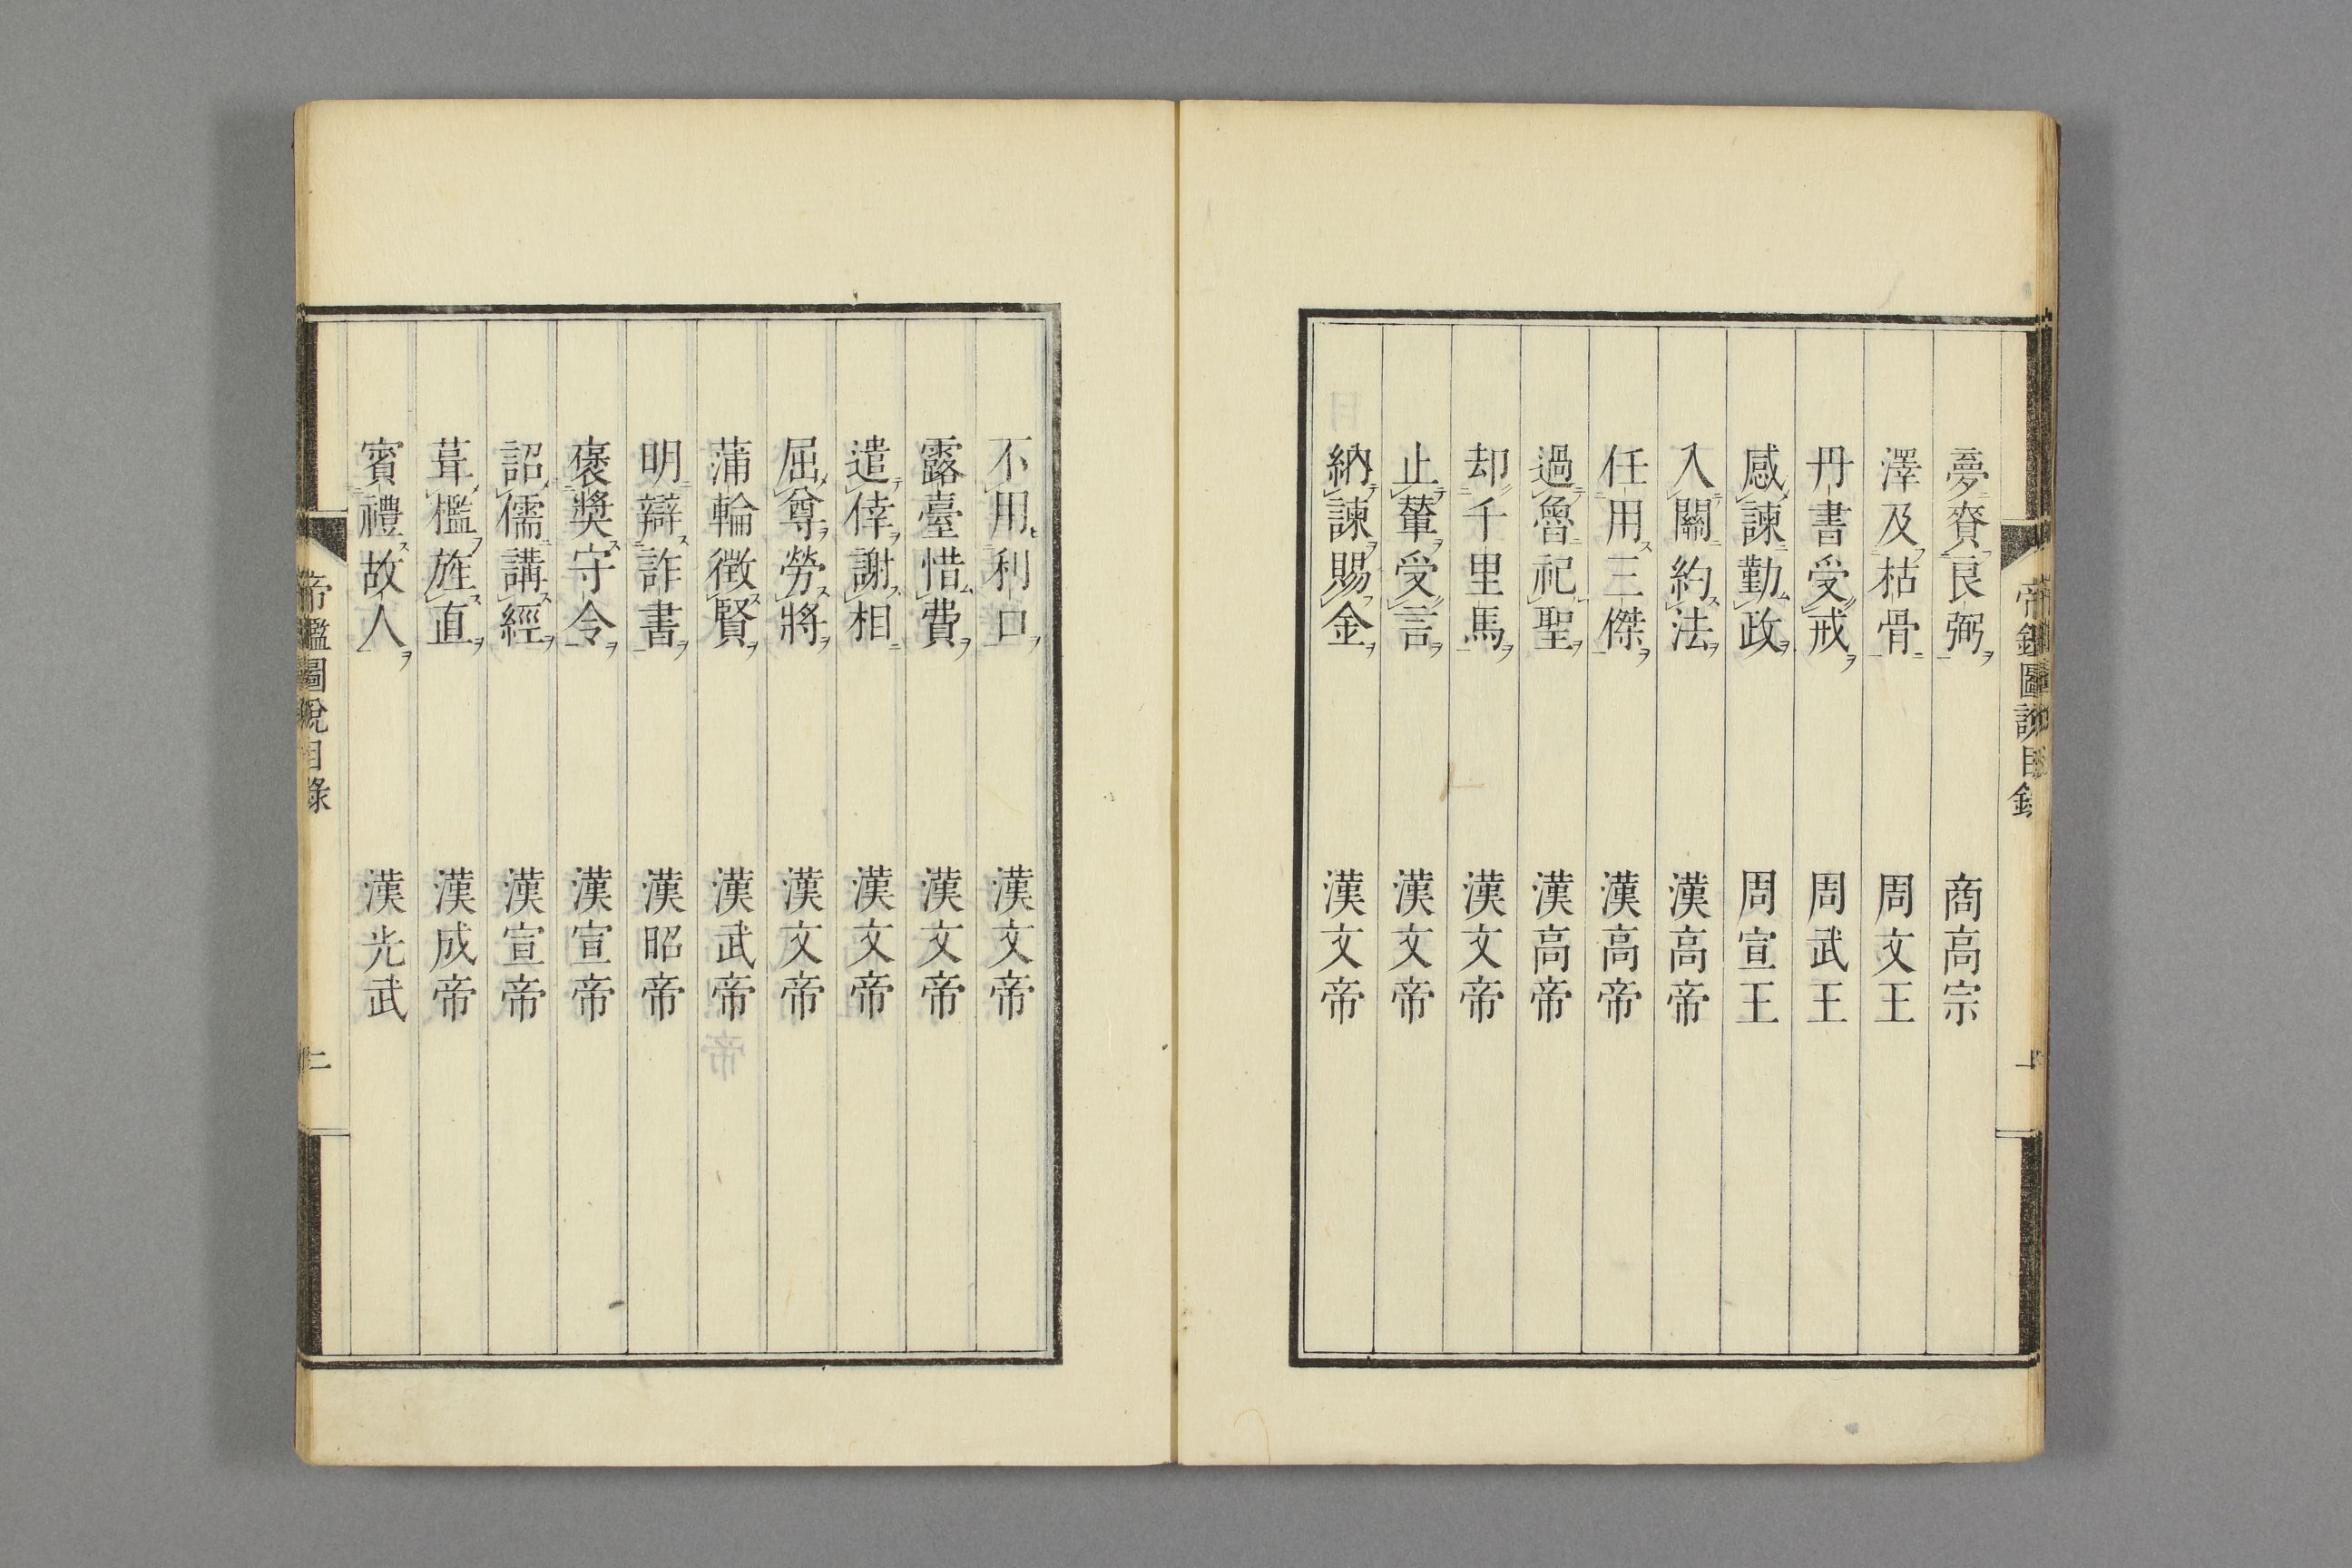 帝鑑圖說目錄
夢賚良弼 商高宗
澤及枯骨 周文王
丹書受戒 周武王
感諫勤政 周宣王
入關約法 漢高帝
任用三傑 漢高帝
過魯祀聖 漢高帝
却千里馬 漢文帝
止輦受言 漢文帝
納諫賜金 漢文帝
不用利口 漢文帝
露臺惜費 漢文帝
遣倖謝相 漢文帝
屈尊勞將 漢文帝
蒲輪徵賢 漢武帝
明辯詐書 漢昭帝
褒奬守令 漢宣帝
詔儒講經 漢宣帝
葺檻旌直 漢成帝
賓禮故人 漢光武
帝鑑圖說目錄 二